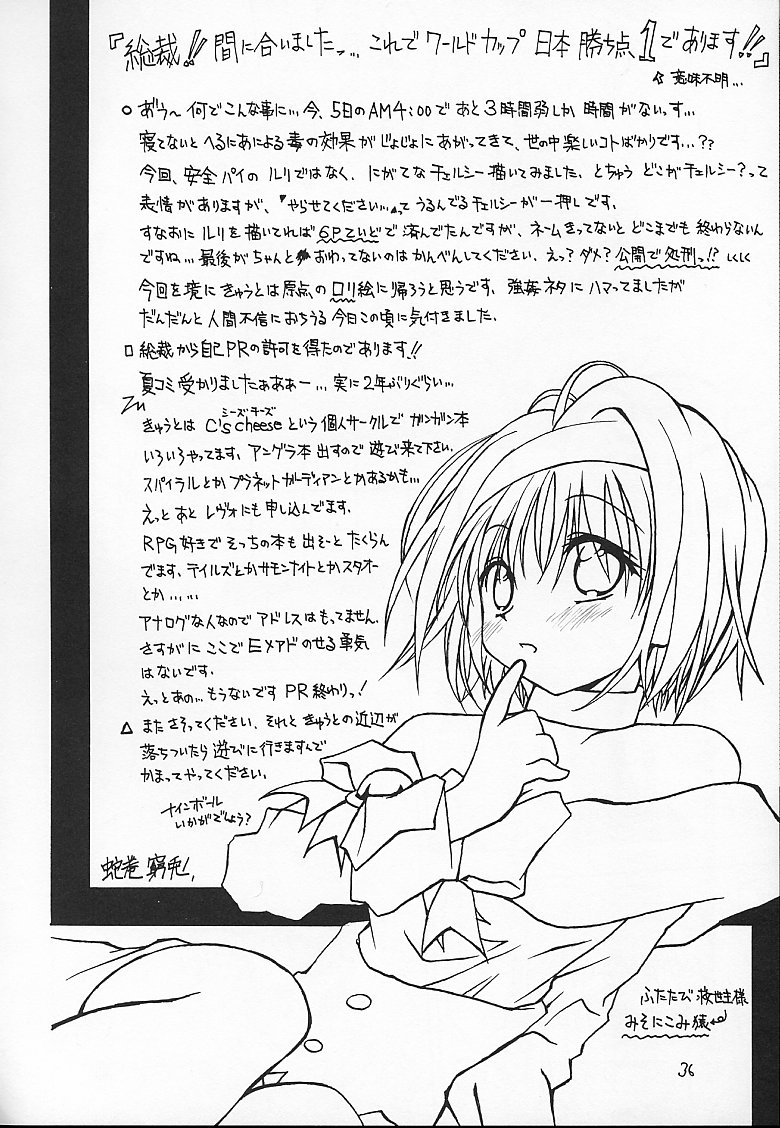 『総裁!! 間に合いましたッ… これで ワールドカップ 日本 勝ち点 1 であります!!』
意味不明…
○ おうー 何でこんな事に… 今、5日のAM4:00で あと3時間弱しか 時間がないっす…
寝てないと へるにあによる毒の効果が じょじょにあがってきて、世の中楽しいコトばかりです…??
今回、安全パイの ルリではなく、にがてなチェルシー描いてみました。とちゅう どこがチェルシー?って
表情がありますが、『やらせてください…』って うるんでるチェルシーが一押しです。
すなおに ルリを描いてれば 6Pていどで 済んでたんですが、ネームきってないと どこまでも 終わらないん
ですね… 最後がちゃんと おわってないのはかんべんしてください、えっ?ダメ?公開で処刑っ!?
今回を境に きゅうとは原点のロリ絵に帰ろうと思うです、強姦ネタにハマってましたが
だんだんと人間不信におちいる今日この頃に気付きました、
□ 総裁から自己PRの許可を得たのであります!!
夏コミ受かりましたぁぁぁー… 実に2年ぶりぐらい…
シーズ・チーズ
きゅうとは C's cheese という個人サークルで ガンガン本
いろいろやってます、アングラ本 出すので 遊び来て下さい、
スパイラルとか プラネットガーディアンとかあるかも…
えっと あと レヴォにも申し込んでます、
RPG好きで そっちの本も出そーと たくらん
でます、テイルズとか サモンナイトとか スタオー
とか……
アナログな人なので アドレスはもってません、
さすがに ここで Eメアドのせる勇気
はないです、
えっとあの… もうないです PR終わりっ!
△ また さそってください、それと きゅうとの近辺が
落ちついたら 遊びに行きますんで
かまってやってください、
ナインボール
いかがでしょう?
蛇巻 窮兎、
ふたたび 救世主様
みそにこみ猿
36